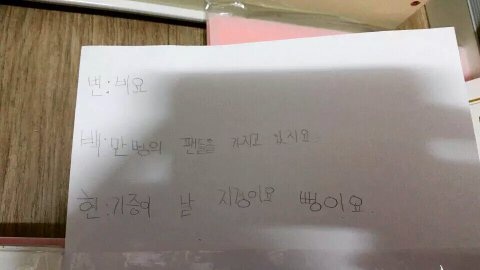 변: 비요
백: 만명의 팬들을 가지고 있시요
현: 기중이 남 지경이요 뻥이요